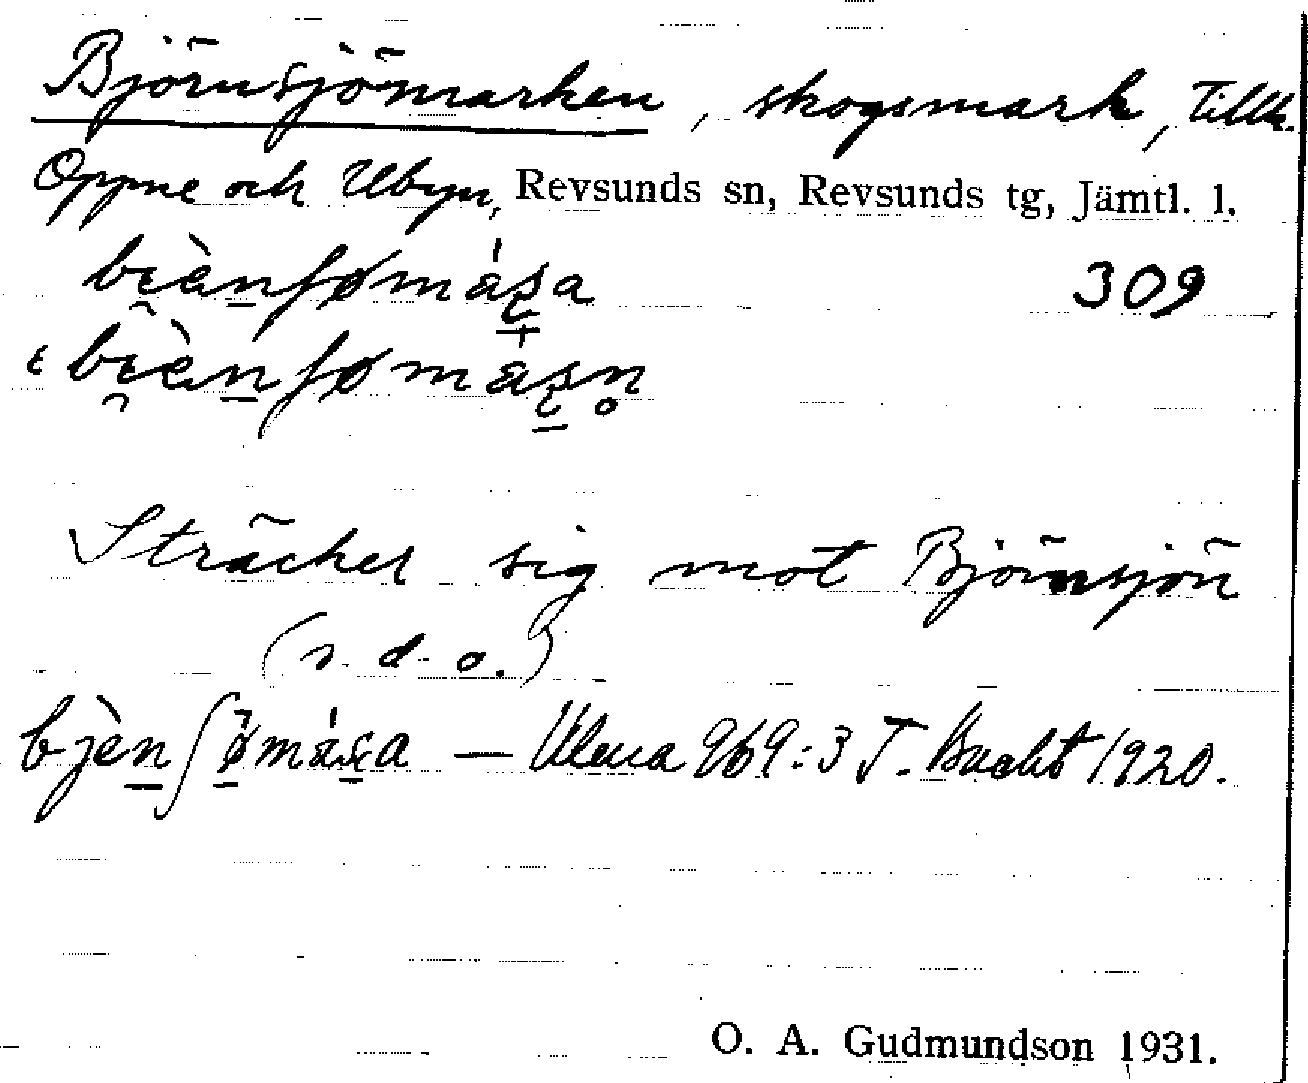 Björnsjömarken, skogsmark, Tillh.
Oppne och Ubyn, Revsunds sn, Revsunds tg, Jämtl. l.
309
Sträcker sig mot Björnsjön
(s. d. o.)
— Ulena 969:3 T. Bucht 1920.
O. A. Gudmundson 1931.